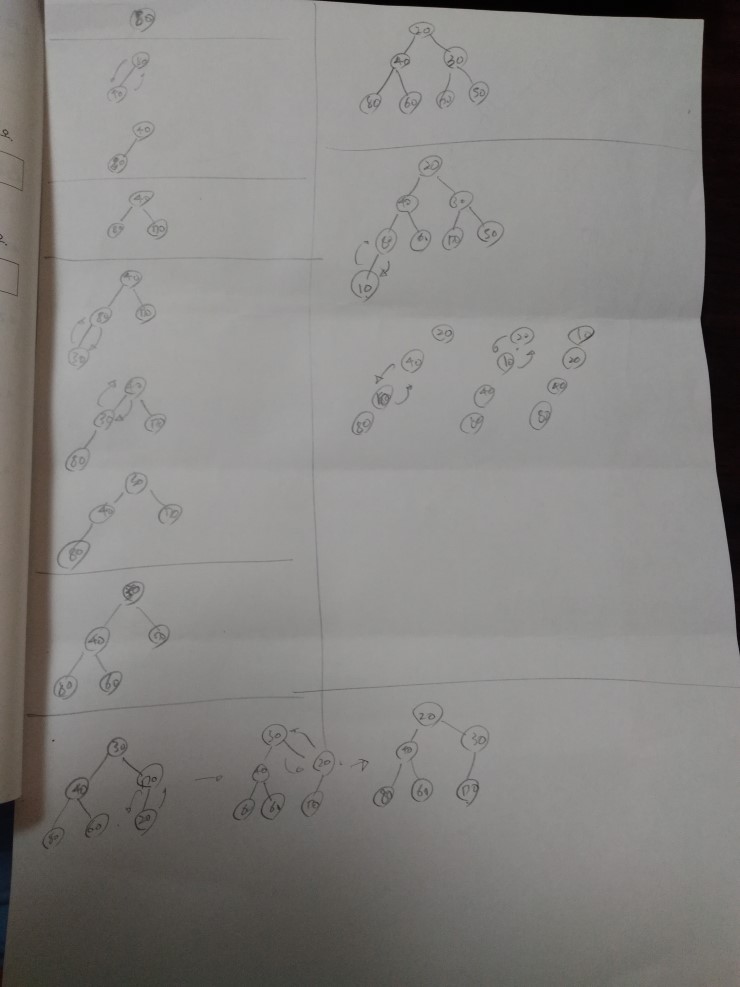 80
40
80
40
80
70
40
80
70
30
40
30
70
80
30
40
70
80
30
40
70
80
60
30
40
70
80
60
20
30
40
20
60
70
20
40
30
80
60
70
20
40
30
80
60
70
50
20
40
30
80
60
70
50
10
20
40
10
80
20
10
40
80
10
20
40
80